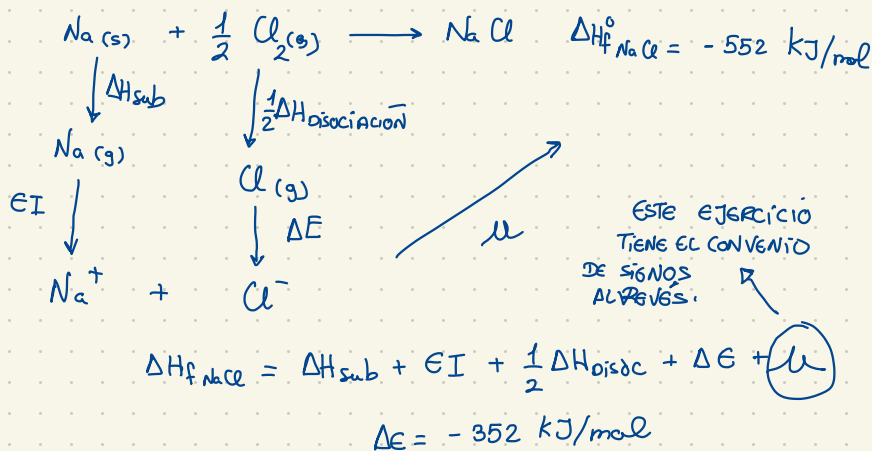 Na (s) + 1/2 Cl2(g) → NaCl ΔHf°NaCl = -552 kJ/mol
ΔHsub
1/2 ΔHDISOCIACIÓN
Na (g)
Cl (g)
EI
ΔE
u
ESTE EJERCICIO
TIENE EL CONVENIO
DE SIGNOS
AL REVÉS.
Na+ + Cl-
ΔHf NaCl = ΔHsub + EI + 1/2 ΔHDisoc + ΔE + u
ΔE = -352 kJ/mol